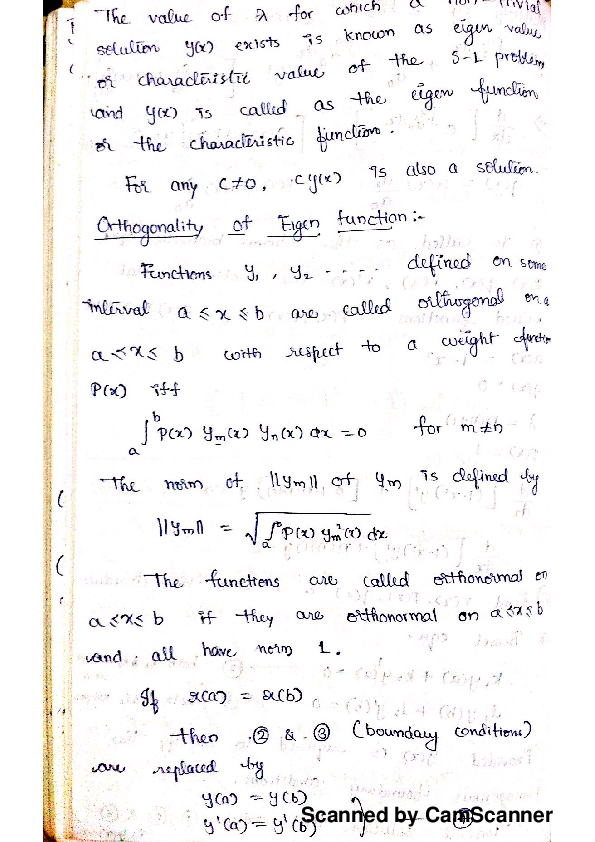 The value of λ for which a non-trivial
solution y(x) exists is known as eigen value
or characteristic value of the S-L problem
and y(x) is called as the eigen function
or the characteristic function.
For any C≠0, cy(x) is also a solution.
Orthogonality of Eigen function :-
Functions y₁, y₂ ..... defined on some
interval a ≤ x ≤ b are called orthogonal on
a ≤ x ≤ b with respect to a weight function
P(x) iff
∫ₐᵇ P(x) yₘ(x) yₙ(x) dx = 0 for m≠n
The norm of ||yₘ|| of yₘ is defined by
||yₘ|| = √∫ₐᵇ P(x) yₘ²(x) dx
The functions are called orthonormal on
a ≤ x ≤ b if they are orthonormal on a ≤ x ≤ b
and all have norm 1.
If r(a) = r(b)
then ② & ③ (boundary conditions)
are replaced by
y(a) = y(b)
y'(a) = y'(b) }
Scanned by CamScanner